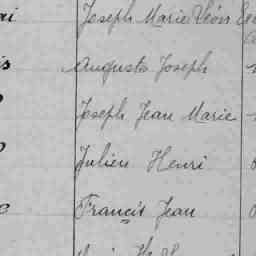 Joseph Marie Léon
Auguste Joseph
Joseph Jean Marie
Julien Henri
Francis Jean